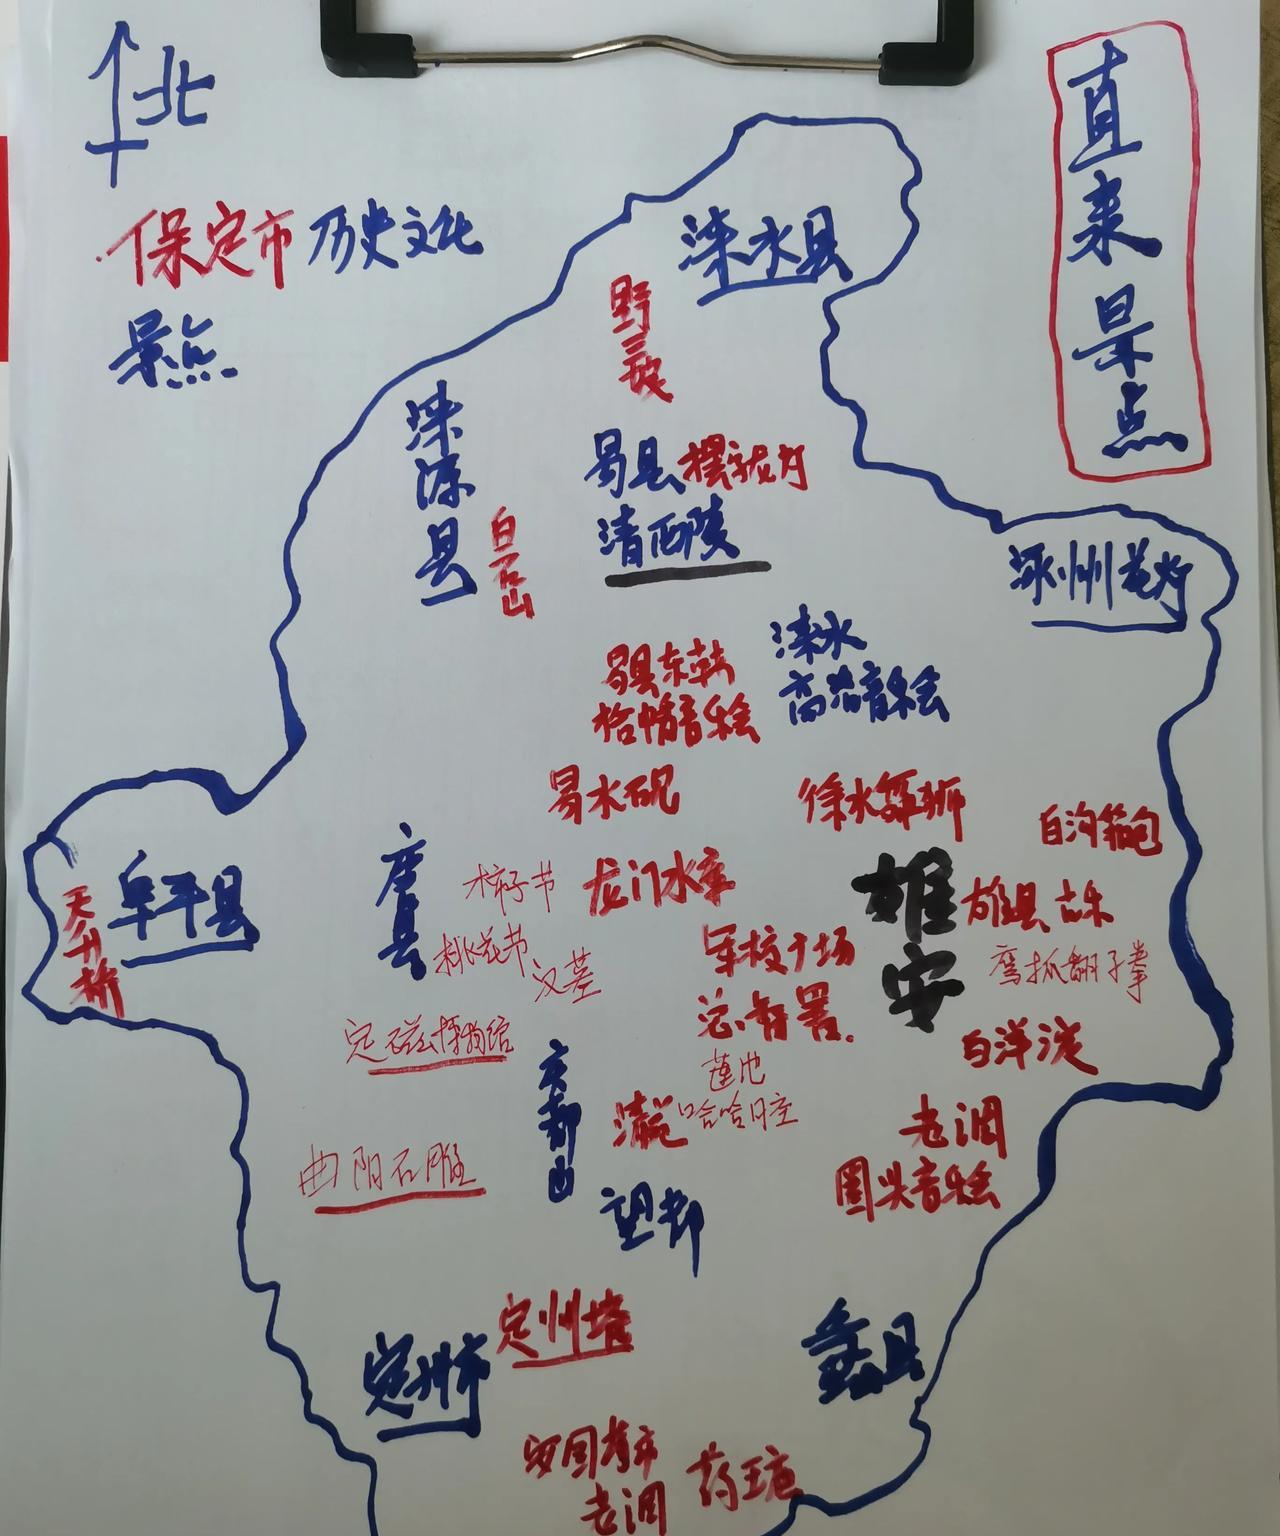 北
直隶景点
保定市历史文化
景点
涞水县
野三坡
涞源县
白石山
易县摆字龙灯
清西陵
涿州花灯
易县东韩
拾幡音乐会
涞水
高洛音乐会
易水砚
徐水舞狮
白沟箱包
阜平县
天生桥
唐县
柿子节
桃花节
汉墓
龙门水库
雄安
雄县古乐
鹰抓翻子拳
军校广场
总督署.
莲池
哈哈腔
清苑
白洋淀
定磁博物馆
庆都山
曲阳石雕
望都
老调
圈头音乐会
定州塔
定州市
蠡县
安国药市
老调
药王庙